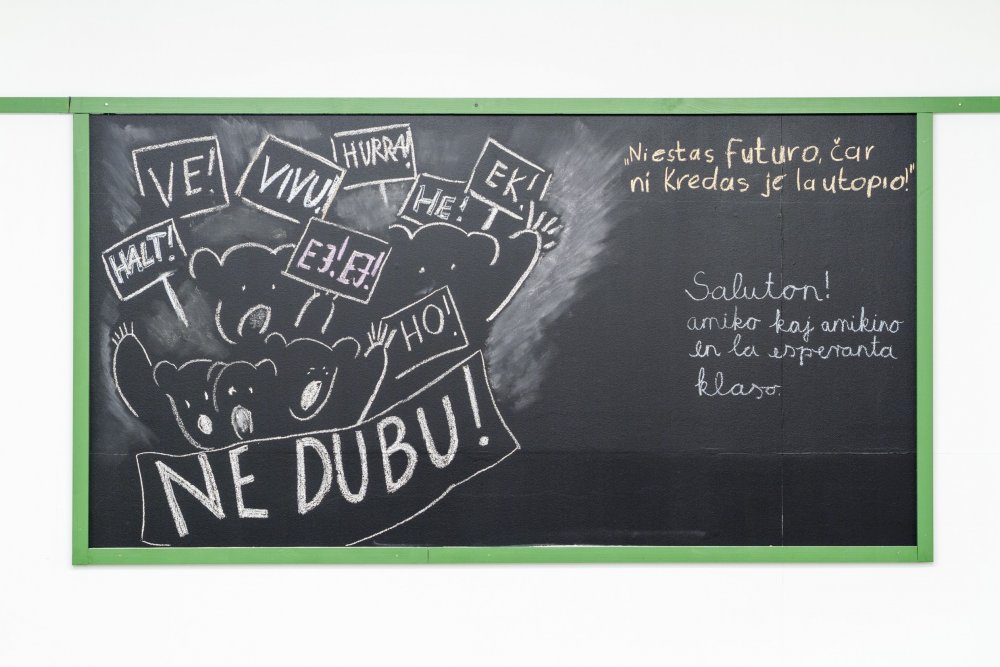 VE!
VIVU!
HURRA!
EK!
HE!
HALT!
EJ! EJ!
HO!
NE DUBU!
„Niestas Futuro, čar
ni Kredas je la utopio!"
Saluton!
amiko kaj amikino
en la esperanta
klaso.